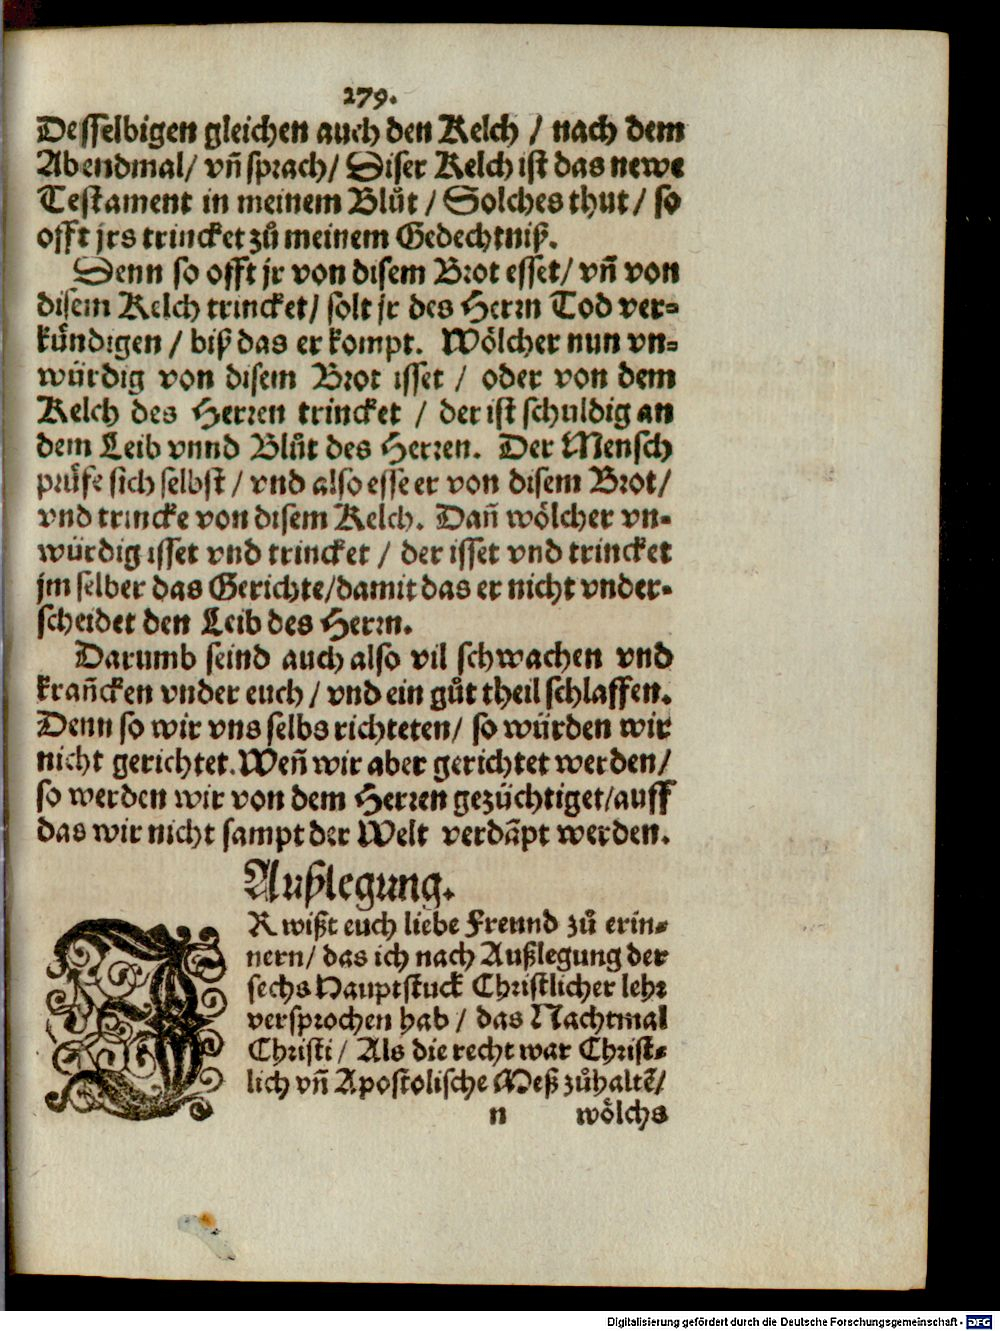 279.
Desselbigen gleichen auch den Kelch / nach dem
Abendmal/ vñ sprach/ Diser Kelch ist das newe
Testament in meinem Blůt / Solches thut / so
offt jrs trincket zů meinem Gedechtniß.
Denn so offt jr von disem Brot esset/ vñ von
disem Kelch trincket/ solt jr des Herrn Tod ver-
kündigen / biß das er kompt. Wölcher nun vn-
würdig von disem Brot isset / oder von dem
Kelch des Herren trincket / der ist schuldig an
dem Leib vnnd Blůt des Herren. Der Mensch
prüfe sich selbst / vnd also esse er von disem Brot/
vnd trincke von disem Kelch. Dañ wölcher vn-
würdig isset vnd trincket / der isset vnd trincket
jm selber das Gerichte/damit das er nicht vnder-
scheidet den Leib des Herrn.
Darumb seind auch also vil schwachen vnd
krañcken vnder euch / vnd ein gůt theil schlaffen.
Denn so wir vns selbs richteten/ so würden wir
nicht gerichtet. Weñ wir aber gerichtet werden/
so werden wir von dem Herren gezüchtiget/auff
das wir nicht sampt der Welt verdãpt werden.
Außlegung.
IR wißt euch liebe Freund zů erin-
nern/ das ich nach Außlegung der
sechs Hauptstuck Christlicher lehr
versprochen hab / das Nachtmal
Christi / Als die recht war Christ-
lich vñ Apostolische Meß zůhaltẽ/
n wölchs
Digitalisierung gefördert durch die Deutsche Forschungsgemeinschaft - DFG